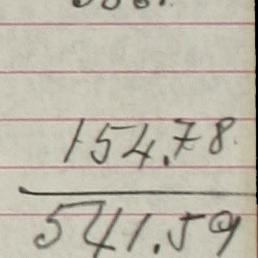 154.78
541.59